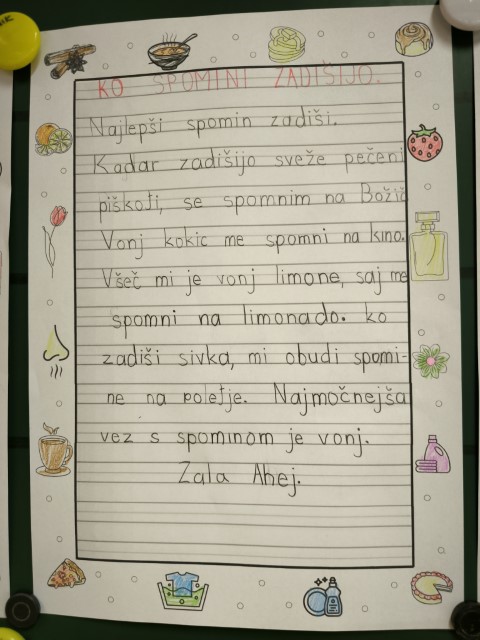 KO SPOMINI ZADIŠIJO.
Najlepši spomin zadiši.
Kadar zadišijo sveže pečeni
piškoti, se spomnim na Božič
Vonj kokic me spomni na kino.
Všeč mi je vonj limone, saj me
spomni na limonado. ko
zadiši sivka, mi obudi spomi-
ne na poletje. Najmočnejša
vez s spominom je vonj.
Zala Ahej.